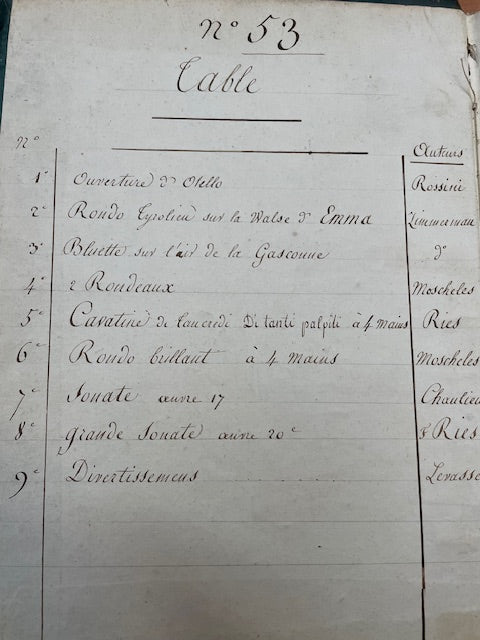 N° 53
Table
N° Auteurs
1° Ouverture d'Otello Rossini
2° Rondo Tyrolien sur la Walse d'Emma Zimmerman
3° Bluette sur l'air de la Gasconne d°
4° 2 Rondeaux Moscheles
5° Cavatine de Tancredi Di tanti palpiti à 4 mains Ries
6° Rondo brillant à 4 mains Moscheles
7° Sonate œuvre 17 Chaulieu
8° grande Sonate œuvre 20e F Ries
9° Divertissemens Levasse